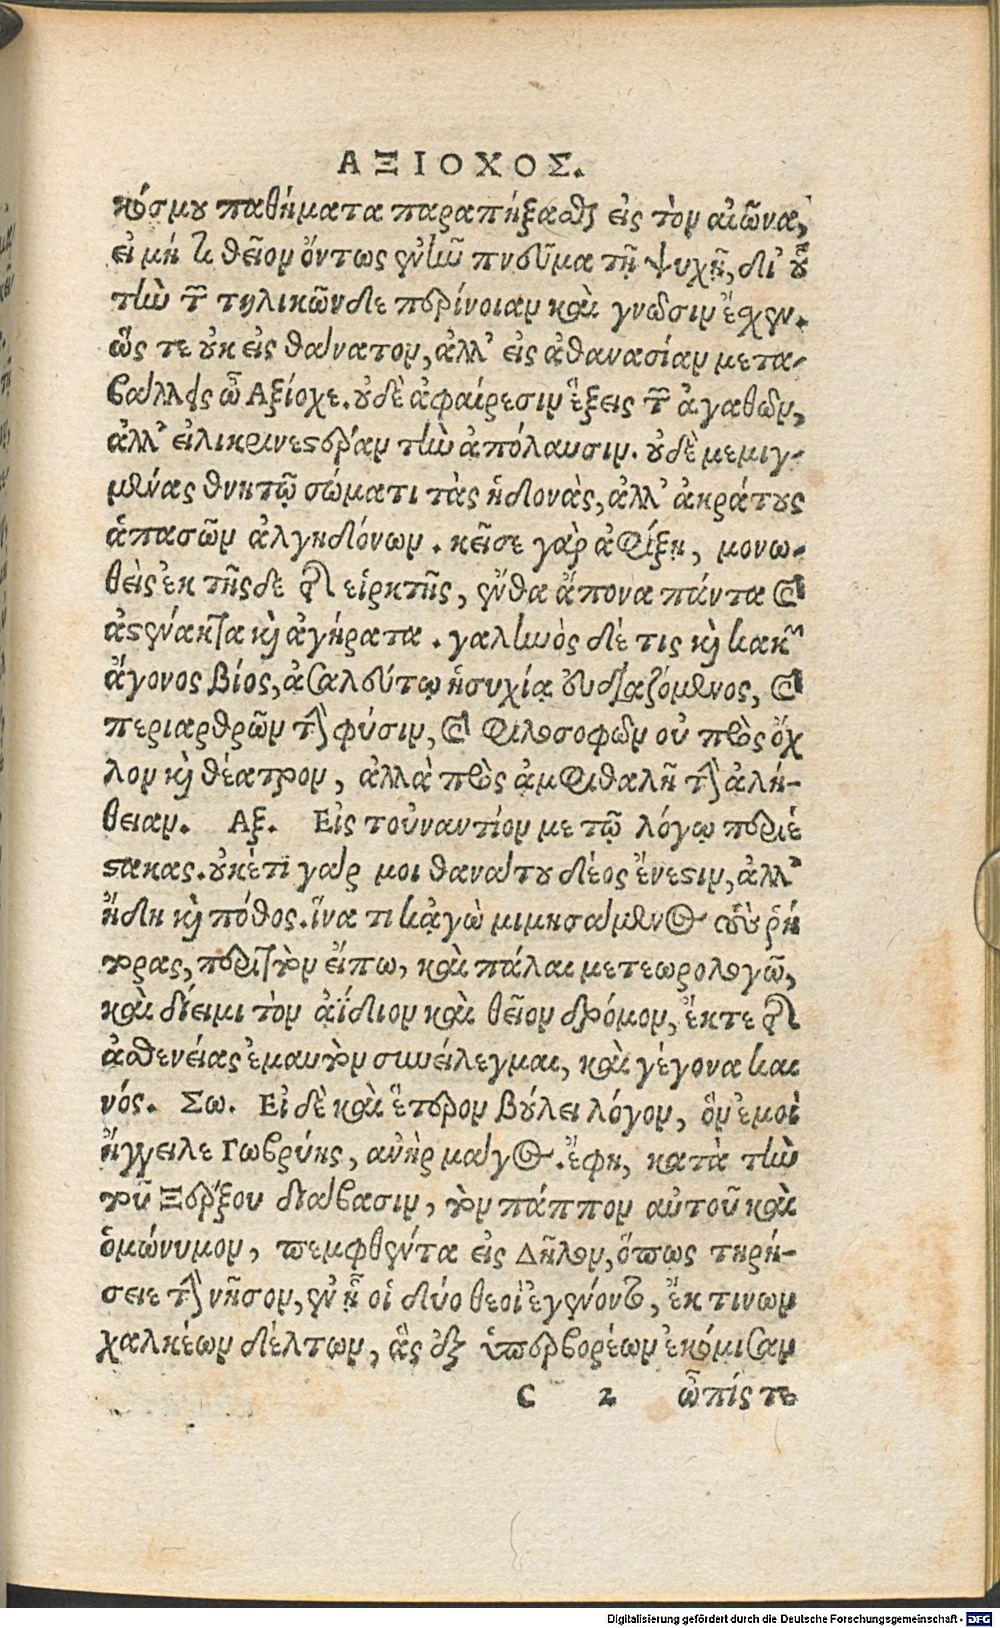 ΑΞΙΟΧΟΣ.
κόσμου παθήματα παραπήξασθαι εἰς τὸν αἰῶνα,
εἰ μή τι θεῖον ὄντως ἐνῆν πνεῦμα τῇ ψυχῇ, δι' οὗ
τὴν τῶν τηλικῶνδε περίνοιαν καὶ γνῶσιν ἔχεν.
ὥς τε οὐκ εἰς θάνατον, ἀλλ' εἰς ἀθανασίαν μετα-
βάλλεις ὦ Αξίοχε. οὐδὲ ἀφαίρεσιν ἕξεις τῶν ἀγαθῶν,
ἀλλ' εἰλικρινεστέραν τὴν ἀπόλαυσιν. οὐδὲ μεμιγ-
μένας θνητῷ σώματι τὰς ἡδονὰς, ἀλλ' ἀκράτους
ἁπασῶν ἀλγηδόνων. κεῖσε γὰρ ἀφίξῃ, μονω-
θεὶς ἐκ τῆςδε τῆς εἱρκτῆς, ἔνθα ἄπονα πάντα καὶ
ἀστένακτα καὶ ἀγήρατα. γαληνὸς δέ τις καὶ κακῶν
ἄγονος βίος, ἀσαλεύτῳ ἡσυχίᾳ εὐδιαζόμενος, καὶ
περιαρθρῶν τὴν φύσιν, καὶ φιλοσοφῶν οὐ πρὸς ὄχ
λον καὶ θέατρον, ἀλλὰ πρὸς ἀμφιθαλῆ τὴν ἀλή-
θειαν. Αξ. Εἰς τοὐναντίον με τῷ λόγῳ περιέ
στακας. οὐκέτι γάρ μοι θανάτου δέος ἔνεστιν, ἀλλ'
ἤδη καὶ πόθος. ἵνα τι κἀγὼ μιμησάμενος τοὺς ῥή
τορας, περιττὸν εἴπω, καὶ πάλαι μετεωρολογῶ,
καὶ δίειμι τὸν ἀΐδιον καὶ θεῖον δρόμον, ἔκ τε τῆς
ἀσθενείας ἐμαυτὸν συνείλεγμαι, καὶ γέγονα και
νός. Σω. Εἰ δὲ καὶ ἕτερον βούλει λόγον, ὃν ἐμοὶ
ἤγγειλε Γωβρύης, ἀνὴρ μάγος. ἔφη, κατὰ τὴν
τοῦ Ξέρξου διάβασιν, τὸν πάππον αὐτοῦ καὶ
ὁμώνυμον, πεμφθέντα εἰς Δῆλον, ὅπως τηρή-
σειε τὴν νῆσον, ἐν ᾗ οἱ δύο θεοὶ ἐγένοντο, ἔκ τινων
χαλκέων δέλτων, ἃς ἐξ ὑπερβορέων ἐκόμισαν
C 2 ὦπίς τε
Digitalisierung gefördert durch die Deutsche Forschungsgemeinschaft - DFG